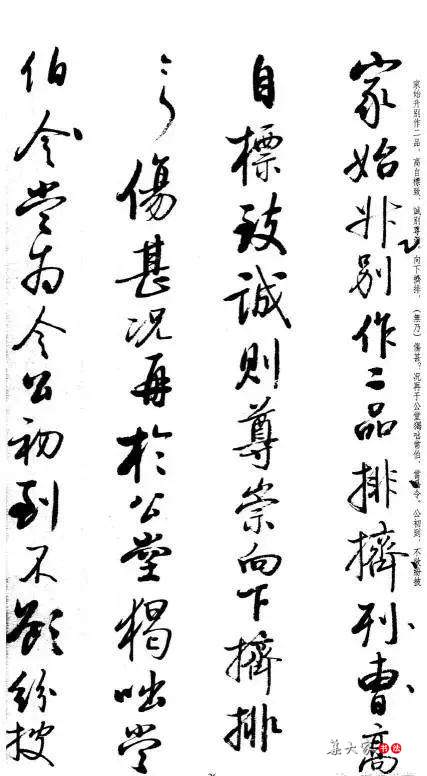 家始升別作二品排擠列曹高
自標致誠則尊崇向下擠排
傷甚況再於公堂猲咄常
伯令當為令公初到不欲紛披
家始升別作二品，高自標致，誠別尊，向下擠排，（無乃）傷甚，況再于公堂獨咄常伯，當令。公初到，不欲紛披
集大家书法